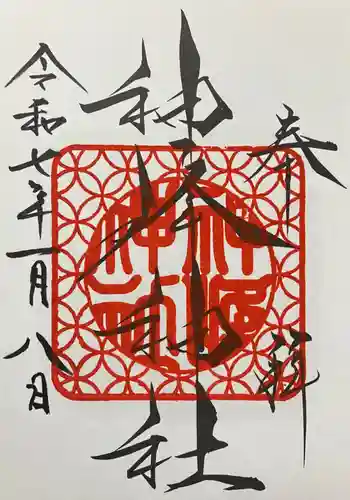 奉拝
神峰神社
令和七年一月八日